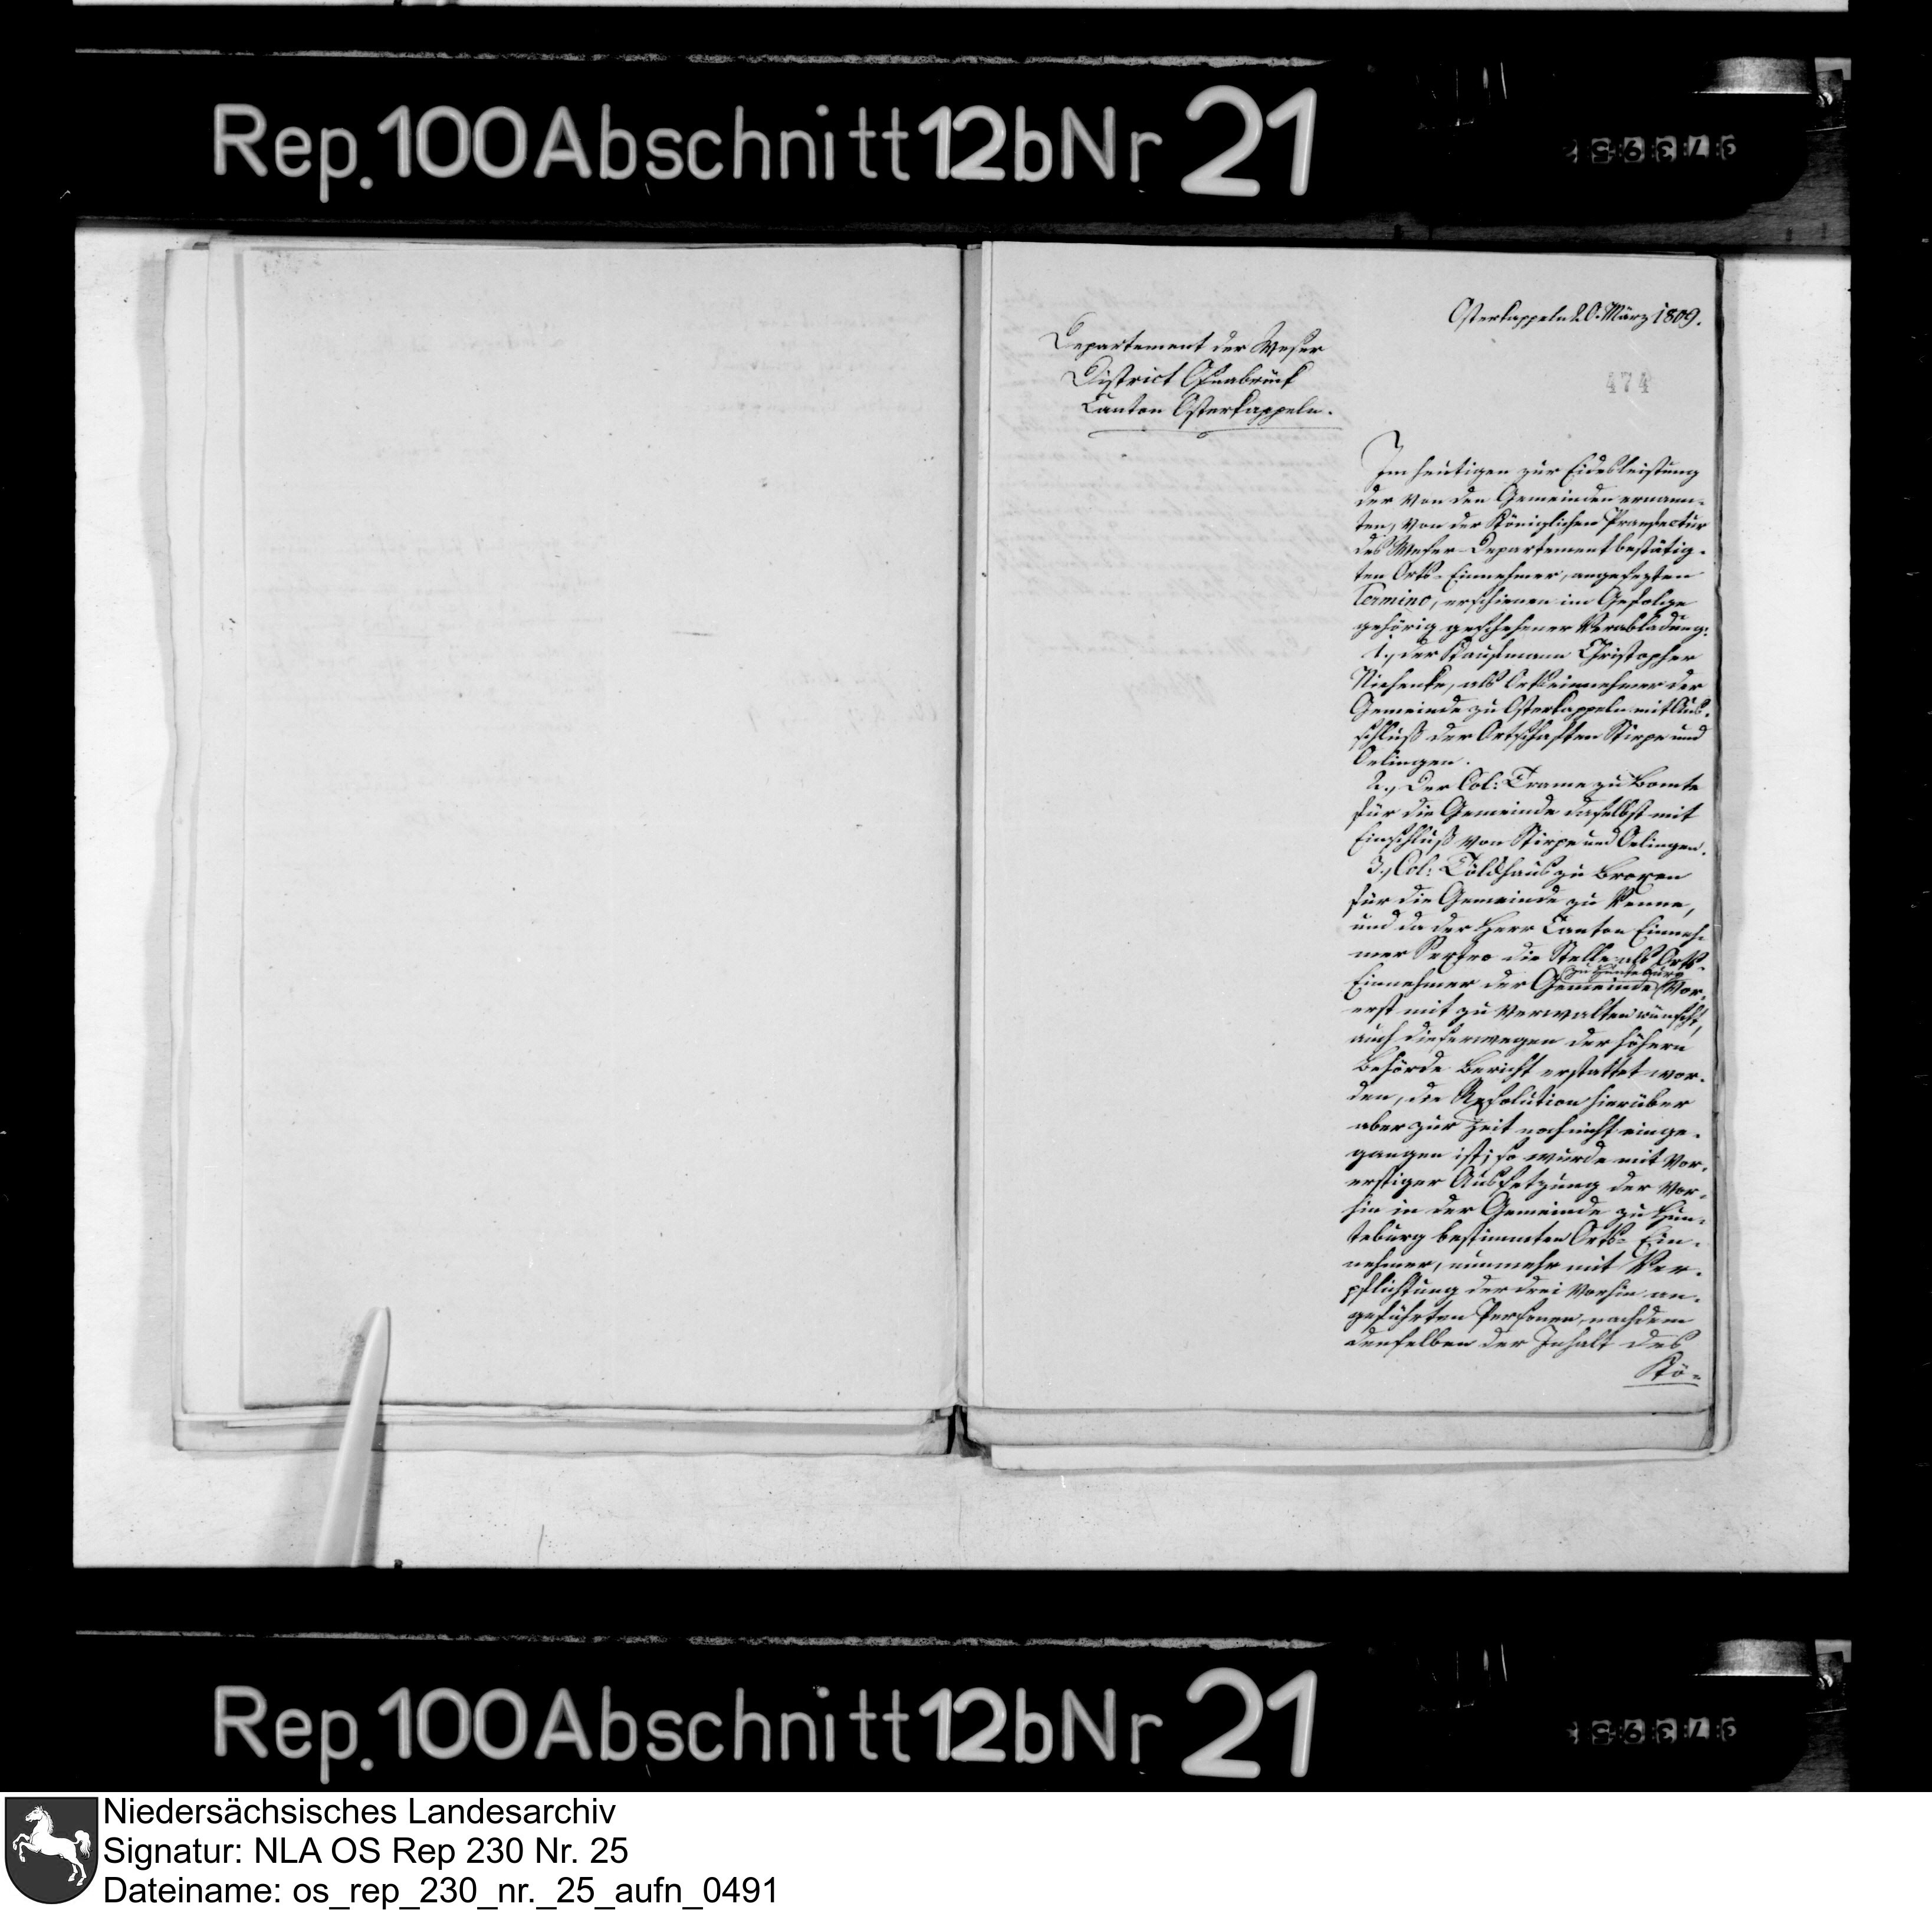 Rep.100Abschnitt12bNr 21
Osterkappeln 20. März 1809.
Departement der Weser
District Osnabrück
Canton Osterkappeln.
474
Im heutigen zur Eidesleistung
der von den Gemeinden ernann-
ten, von der Königlichen Praefectur
des Weser-Departement bestätig-
ten Orts-Einnehmer, angesezten
Termino, erschienen im Gefolge
gehörig geschehener Verabladung:
1., der Kaufmann Christopher
Niehenke, als Ortseinnehmer der
Gemeinde zu Osterkappeln mit Aus-
schluß der Ortschaften Stirpe und
Oelingen.
2., Der Col: Trame zu Bomte
für die Gemeinde daselbst mit
Einschluß von Stirpe und Oelingen.
3., Col: zu Broxen
für die Gemeinde zu Venne,
und da der Herr Canton Einneh-
mer die Stelle als Orts-
zu Hunteburg
Einnehmer der Gemeinde vor-
erst mit zu verwalten wünscht,
auch dieserwegen der höhern
Behörde Bericht erstattet wor-
den, die Resolution hierüber
aber zur Zeit noch nicht einge-
gangen ist; so wurde mit vor-
erstiger Aussetzung der vor-
hin in der Gemeinde zu Hun-
teburg bestimmten Orts-Ein-
nehmer, nunmehr mit Ver-
pflichtung der drei vorhin an-
geführten Personen, nachdem
denselben der Inhalt des
Kö-
Rep.100Abschnitt12bNr 21
Niedersächsisches Landesarchiv
Signatur: NLA OS Rep 230 Nr. 25
Dateiname: os_rep_230_nr._25_aufn_0491